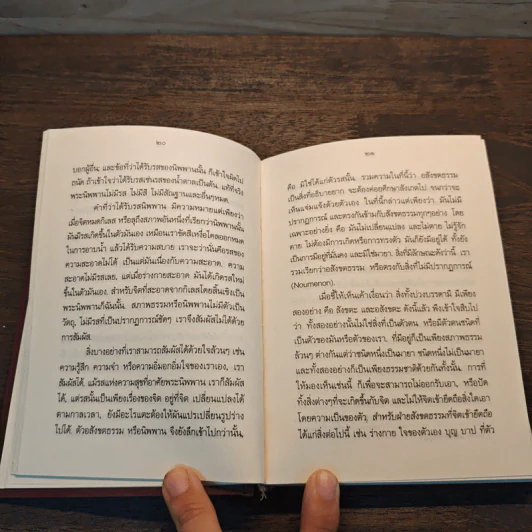 ๒๐
บอกผู้อื่น; และข้อที่ว่าได้รับรสของนิพพานนั้น ก็เข้าใจผิดไป
ถนัด ถ้าเข้าใจว่าได้รับรสเช่นรสของน้ำตาลเป็นต้น. แท้ที่จริง
พระนิพพานไม่มีรส ไม่มีสี ไม่มีสัณฐานและอื่นๆหมด.
คำที่ว่าได้รับรสของนิพพาน มีความหมายแต่เพียงว่า
เมื่อจิตหมดกิเลส หรือลุถึงสภาพอันหนึ่งที่เรียกว่านิพพานนั้น
มันมีรสเกิดขึ้นในตัวมันเอง เหมือนเราขัดสีเหงื่อไคลออกหมด
ในการอาบน้ำ แล้วได้รับความสบาย เราจะว่านั่นคือรสของ
ความสะอาดไม่ได้ เป็นแต่มันเนื่องกับความสะอาด, ความ
สะอาดไม่มีรสเลย, แต่เมื่อร่างกายสะอาด มันได้เกิดรสใหม่
ขึ้นในตัวมันเอง. สำหรับจิตที่สะอาดจากกิเลสโดยสิ้นเชิงเป็น
พระนิพพานก็ฉันนั้น. สภาพธรรมหรือนิพพานไม่มีตัวเป็น
วัตถุ, ไม่มีรสที่เป็นปรากฏการณ์ชัดๆ เราจึงสัมผัสไม่ได้ด้วย
การสัมผัส
สิ่งบางอย่างที่เราสามารถสัมผัสได้ด้วยใจล้วนๆ เช่น
ความรู้สึก ความจำ หรือความอิ่มอกอิ่มใจของเราเอง, เรา
สัมผัสได้, แม้รสแห่งความสุขที่อาศัยพระนิพพาน เราก็สัมผัส
ได้, แต่รสนั้นเป็นเพียงเรื่องของจิต อยู่ที่จิต เปลี่ยนแปลงได้
ตามกาลเวลา, ยังมีอะไรแตะต้องให้มันแปรเปลี่ยนรูปร่าง
ไปได้. ตัวอสังขตธรรม หรือนิพพาน จึงยังลึกเข้าไปกว่านั้น,
๒๑
คือ มิใช่ได้แก่ตัวรสนั้น. รวมความในที่นี้ว่า อสังขตธรรม
เป็นสิ่งที่อธิบายยาก จะต้องค่อยศึกษาสังเกตไป จนกว่าจะ
เห็นแจ่มแจ้งด้วยตัวเอง ในที่นี้กล่าวแต่เพียงว่า มันไม่มี
ปรากฏการณ์ และตรงกันข้ามกับสังขตธรรมทุกๆอย่าง โดย
เฉพาะอย่างยิ่ง คือ มันไม่เปลี่ยนแปลง และไม่ตาย ไม่รู้จัก
ตาย ไม่ต้องมีการเกิดหรือการทรงตัว มันก็ยังมีอยู่ได้ ทั้งยัง
เป็นการมีอยู่ที่มั่นคง และมิใช่มายา. สิ่งที่มีลักษณะดังว่านี้ เรา
รวมเรียกว่าอสังขตธรรม หรือตรงกับสิ่งที่ไม่มีปรากฏการณ์
(Noumenon).
เมื่อชี้ให้เห็นเค้าเงื่อนว่า สิ่งทั้งปวงบรรดามี มีเพียง
สองอย่าง คือ สังขตะ และอสังขตะ ดังนี้แล้ว พึงเข้าใจสืบไป
ว่า ทั้งสองอย่างนั้นไม่ใช่สิ่งที่เป็นตัวตน หรือมีตัวตนชนิดที่
เป็นตัวของมันหรือตัวของเรา. ที่มีอยู่ก็เป็นเพียงสภาพธรรม
ล้วนๆ ต่างกันแต่ว่าชนิดหนึ่งเป็นมายา ชนิดหนึ่งไม่เป็นมายา
และทั้งสองอย่างก็เป็นเพียงธรรมชาติด้วยกันทั้งนั้น. การที่
ให้มองเห็นเช่นนี้ ก็เพื่อจะสามารถไม่ออกรับเอา, หรือปัด
ทิ้งสิ่งต่างๆที่จะเกิดขึ้นกับจิต และไม่ให้จิตเข้ายึดถือสิ่งใดเอา
โดยความเป็นของตัว, สำหรับฝ่ายสังขตธรรมที่จิตเข้ายึดถือ
ได้แก่สิ่งต่อไปนี้ เช่น ร่างกาย ใจของตัวเอง บุญ บาป ที่ตัว